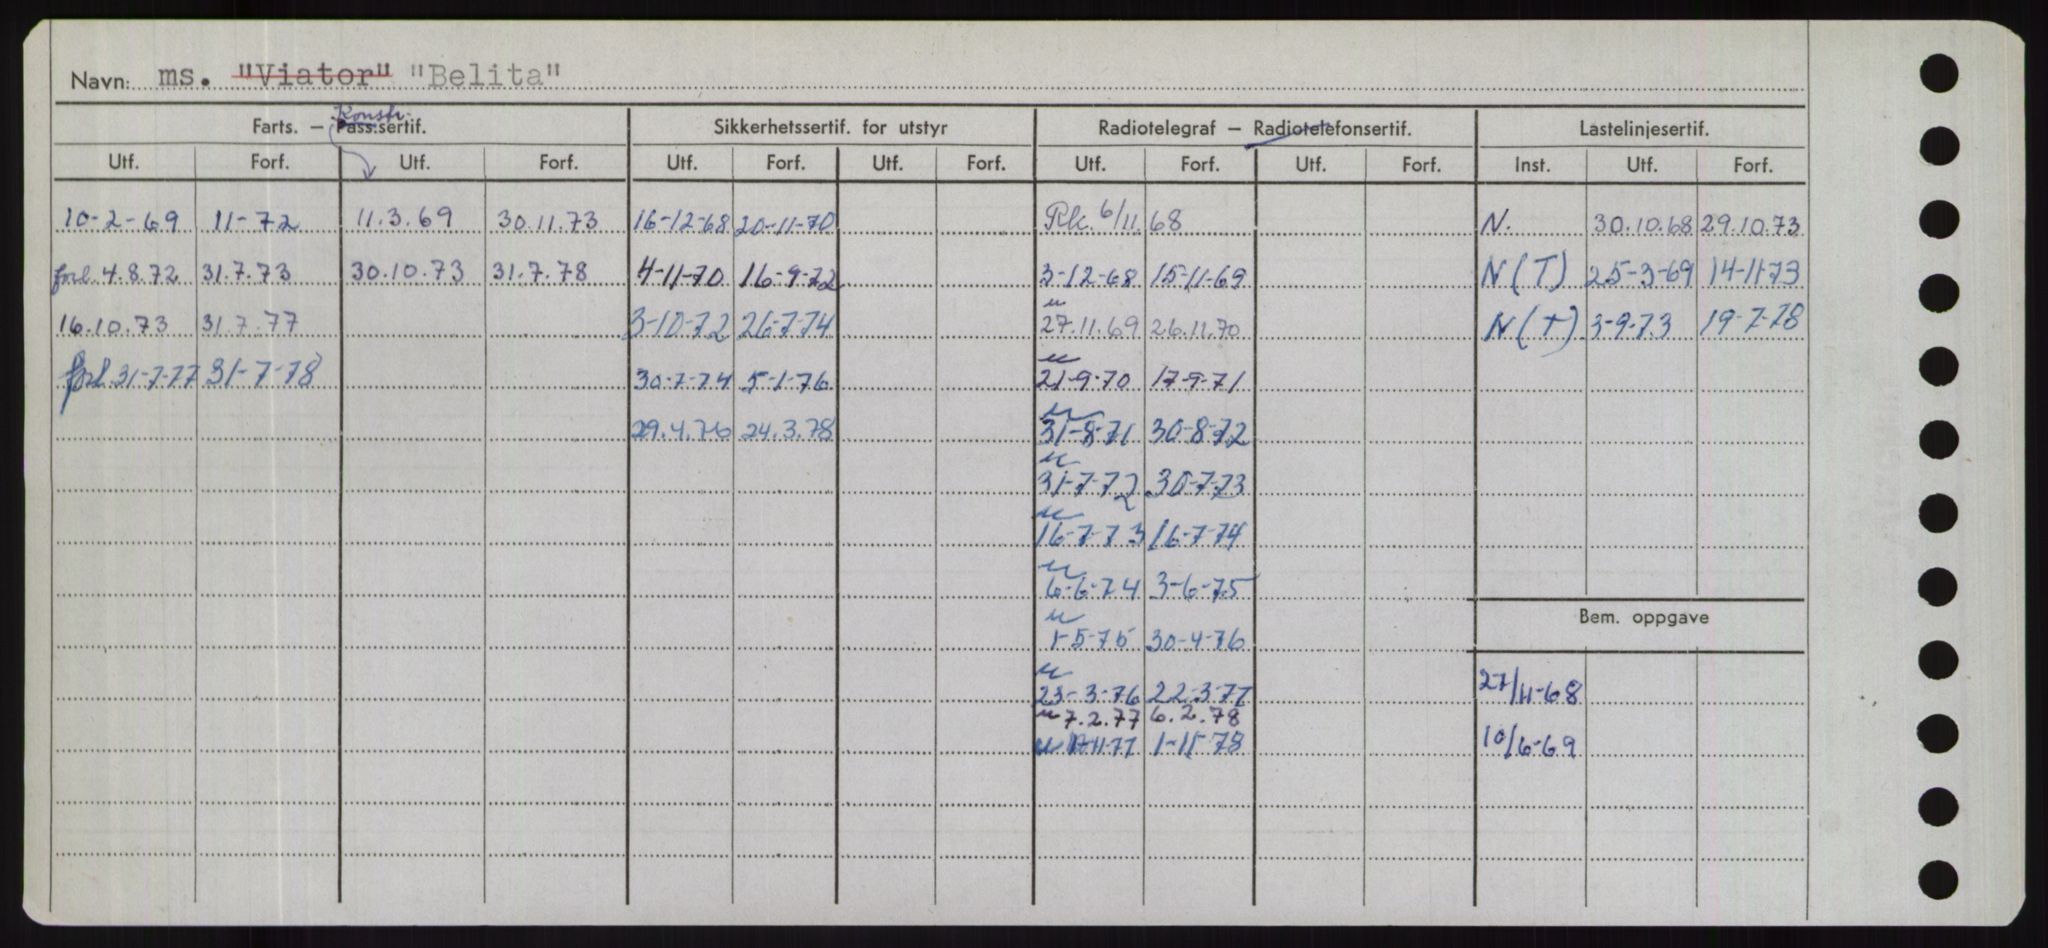 Navn: ms. "Viator" "Belita"
Konstr.
Farts. – Pass.sertif. Sikkerhetssertif. for utstyr Radiotelegraf – Radiotelefonsertif. Lastelinjesertif.
Utf. Forf. Utf. Forf. Utf. Forf. Utf. Forf. Utf. Forf. Utf. Forf. Inst. Utf. Forf.
10-2-69 11-72 11.3.69 30.11.73 16-12-68 20-11-70 Rk. 6/11.68 N. 30.10.68 29.10.73
forl. 4.8.72 31.7.73 30.10.73 31.7.78 4-11-70 16-9-72 3-12-68 15-11-69 N(T) 25-3-69 14-11-73
16.10.73 31.7.77 3-10-72 26-7-74 " 27.11.69 26.11.70 N(T) 3-9-73 19-7-78
forl. 31-7-77 31-7-78 30-7-74 5-1-76 " 21-9-70 17-9-71
29.4.76 24.3.78 " 31-8-71 30-8-72
" 31-7-72 30-7-73
" 16-7-73 16-7-74
" 6-6-74 3-6-75
Bem. oppgave
" 1-5-75 30-4-76
" 23-3-76 22-3-77 27/11-68
" 7.2.77 6.2.78
" 1-11-78 10/6-69